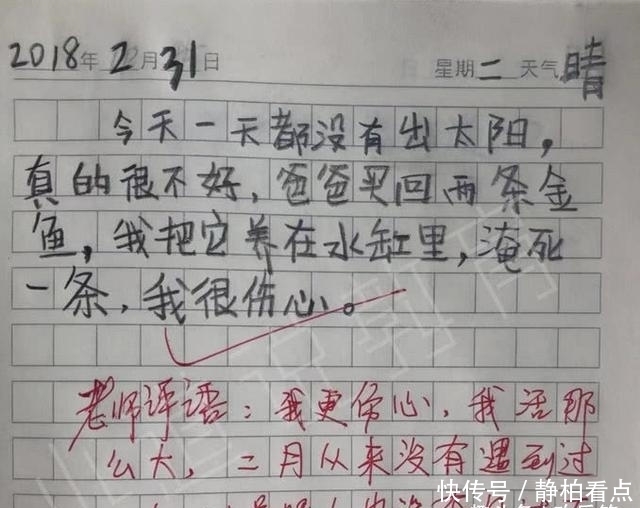 2018年2月31日 星期二 天气晴
今天一天都没有出太阳，
真的很不好，爸爸买回两条金
鱼，我把它养在水缸里，淹死
一条，我很伤心。
老师评语：我更伤心，我活那
么大，二月从来没有遇到过
快传号／静柏看点